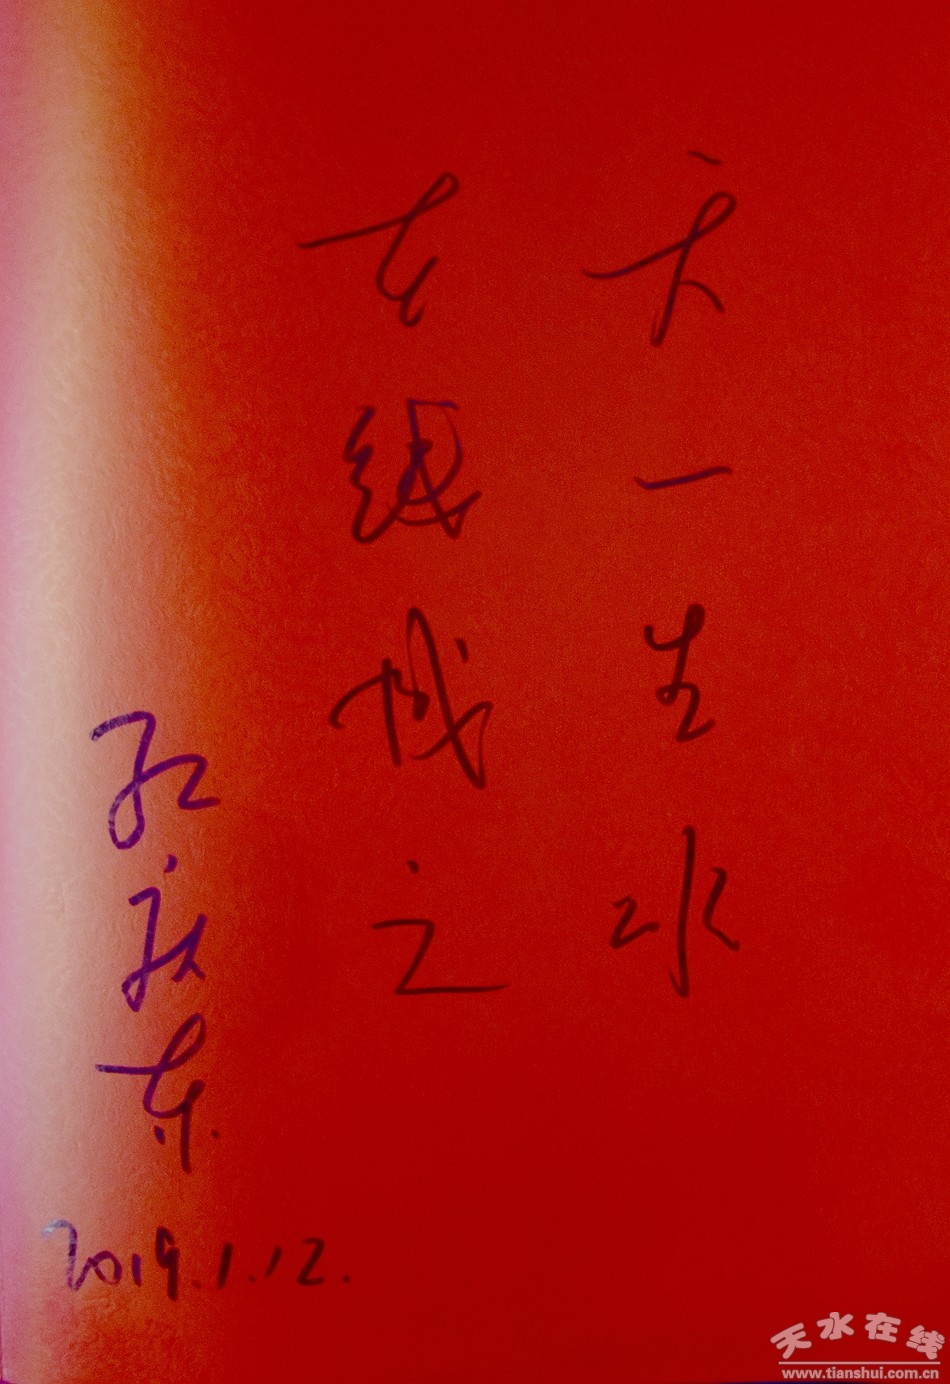 天一生水
在线成之
孔庆东
2019.1.12.
天水在线
www.tianshui.com.cn